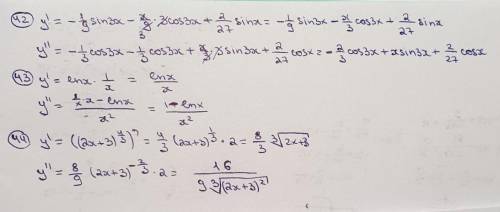 42) y' = -1/9 sin3x - x/9 · 3cos3x + 2/27 sinx = -1/9 sin3x - x/3 cos3x + 2/27 sinx
y'' = -1/3 cos3x - 1/3 cos3x + x/3 · 3 sin3x + 2/27 cosx = -2/3 cos3x + x sin3x + 2/27 cosx
43) y' = lnx · 1/x = lnx/x
y'' = (1/x · x - lnx)/x² = (1 - lnx)/x²
44) y' = ((2x+3)^(4/3))' = 4/3 (2x+3)^(1/3) · 2 = 8/3 ∛(2x+3)
y'' = 8/9 (2x+3)^(-2/3) · 2 = 16/(9∛((2x+3)²))